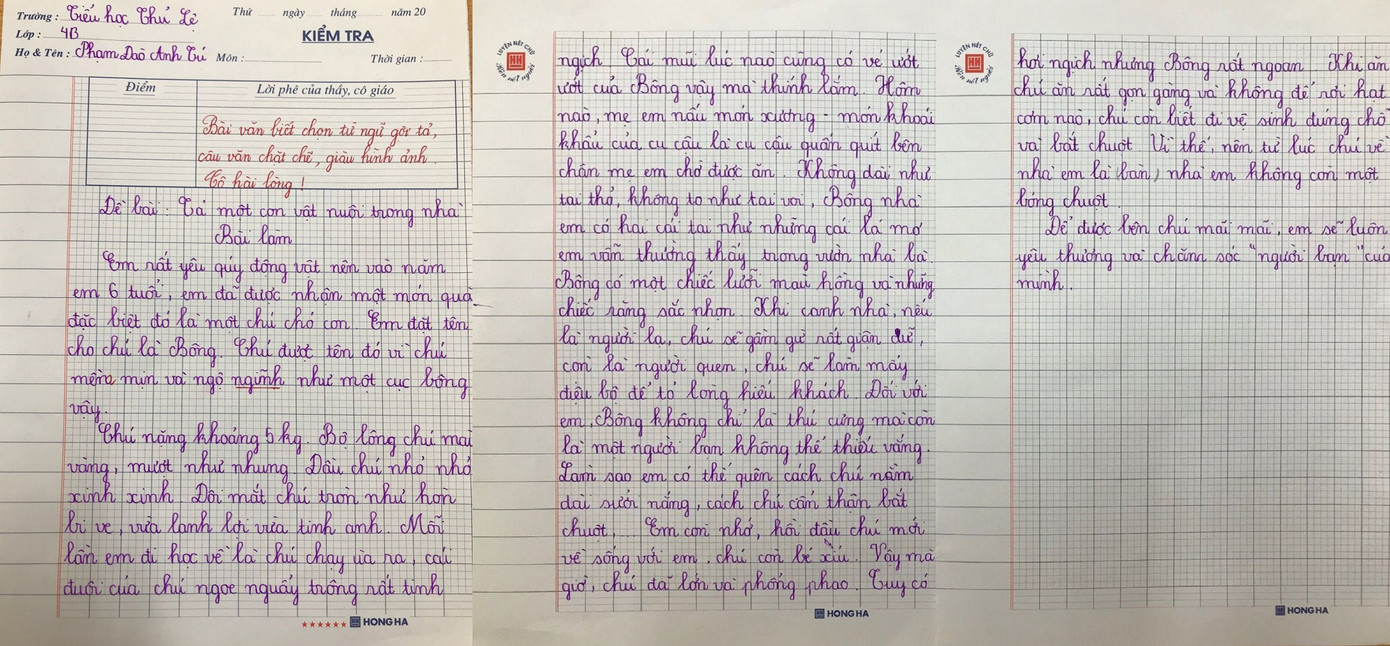 Trường : Tiểu học Thủ Lệ
Lớp : 4B
Họ & Tên : Phạm Đào Anh Tú Môn :
Thứ ngày tháng năm 20
KIỂM TRA
Thời gian :
Điểm
Lời phê của thầy, cô giáo
Bài văn biết chọn từ ngữ gợi tả,
câu văn chặt chẽ, giàu hình ảnh.
Cô hài lòng !
Đề bài : Tả một con vật nuôi trong nhà
Bài làm
Em rất yêu quý động vật nên vào năm
em 6 tuổi, em đã được nhận một món quà
đặc biệt đó là một chú chó con. Em đặt tên
cho chú là Bông. Chú được tên đó vì chú
mềm mịn và ngộ ngĩnh như một cục bông
vậy.
Chú nặng khoảng 5 kg. Bộ lông chú màu
vàng, mượt như nhung. Đầu chú nhỏ nhỏ
xinh xinh. Đôi mắt chú tròn như hòn
bi ve, vừa lanh lợi vừa tinh anh. Mỗi
lần em đi học về là chú chạy ùa ra, cái
đuôi của chú ngoe nguẩy trông rất tinh
HONG HA
LUYỆN NÉT CHỮ
HH
Rèn nết người
ngịch. Cái mũi lúc nào cũng có vẻ ướt
ướt của Bông vậy mà thính lắm. Hôm
nào, mẹ em nấu món xương - món khoái
khẩu của cu cậu là cu cậu quấn quít bên
chân mẹ em chờ được ăn. Không dài như
tai thỏ, không to như tai voi, Bông nhà
em có hai cái tai như những cái lá mơ
em vẫn thường thấy trong vườn nhà bà.
Bông có một chiếc lưỡi màu hồng và những
chiếc răng sắc nhọn. Khi canh nhà, nếu
là người lạ, chú sẽ gầm gừ rất giận dữ,
còn là người quen, chú sẽ làm mấy
điệu bộ để tỏ lòng hiếu khách. Đối với
em, Bông không chỉ là thú cưng mà còn
là một người bạn không thể thiếu vắng.
Làm sao em có thể quên cách chú nằm
dài sưởi nắng, cách chú cẩn thận bắt
chuột, Em còn nhớ, hồi đầu chú mới
về sống với em, chú còn bé xíu. Vậy mà
giờ, chú đã lớn và phổng phao. Tuy có
HONG HA
LUYỆN NÉT CHỮ
HH
Rèn nết người
hơi ngịch nhưng Bông rất ngoan. Khi ăn
chú ăn rất gọn gàng và không để rơi hạt
cơm nào, chú còn biết đi vệ sinh đúng chỗ
và bắt chuột. Vì thế, nên từ lúc chú về
nhà em là bạn, nhà em không còn một
bóng chuột.
Để được bên chú mãi mãi, em sẽ luôn
yêu thương và chăm sóc "người bạn" của
mình.
HONG HA